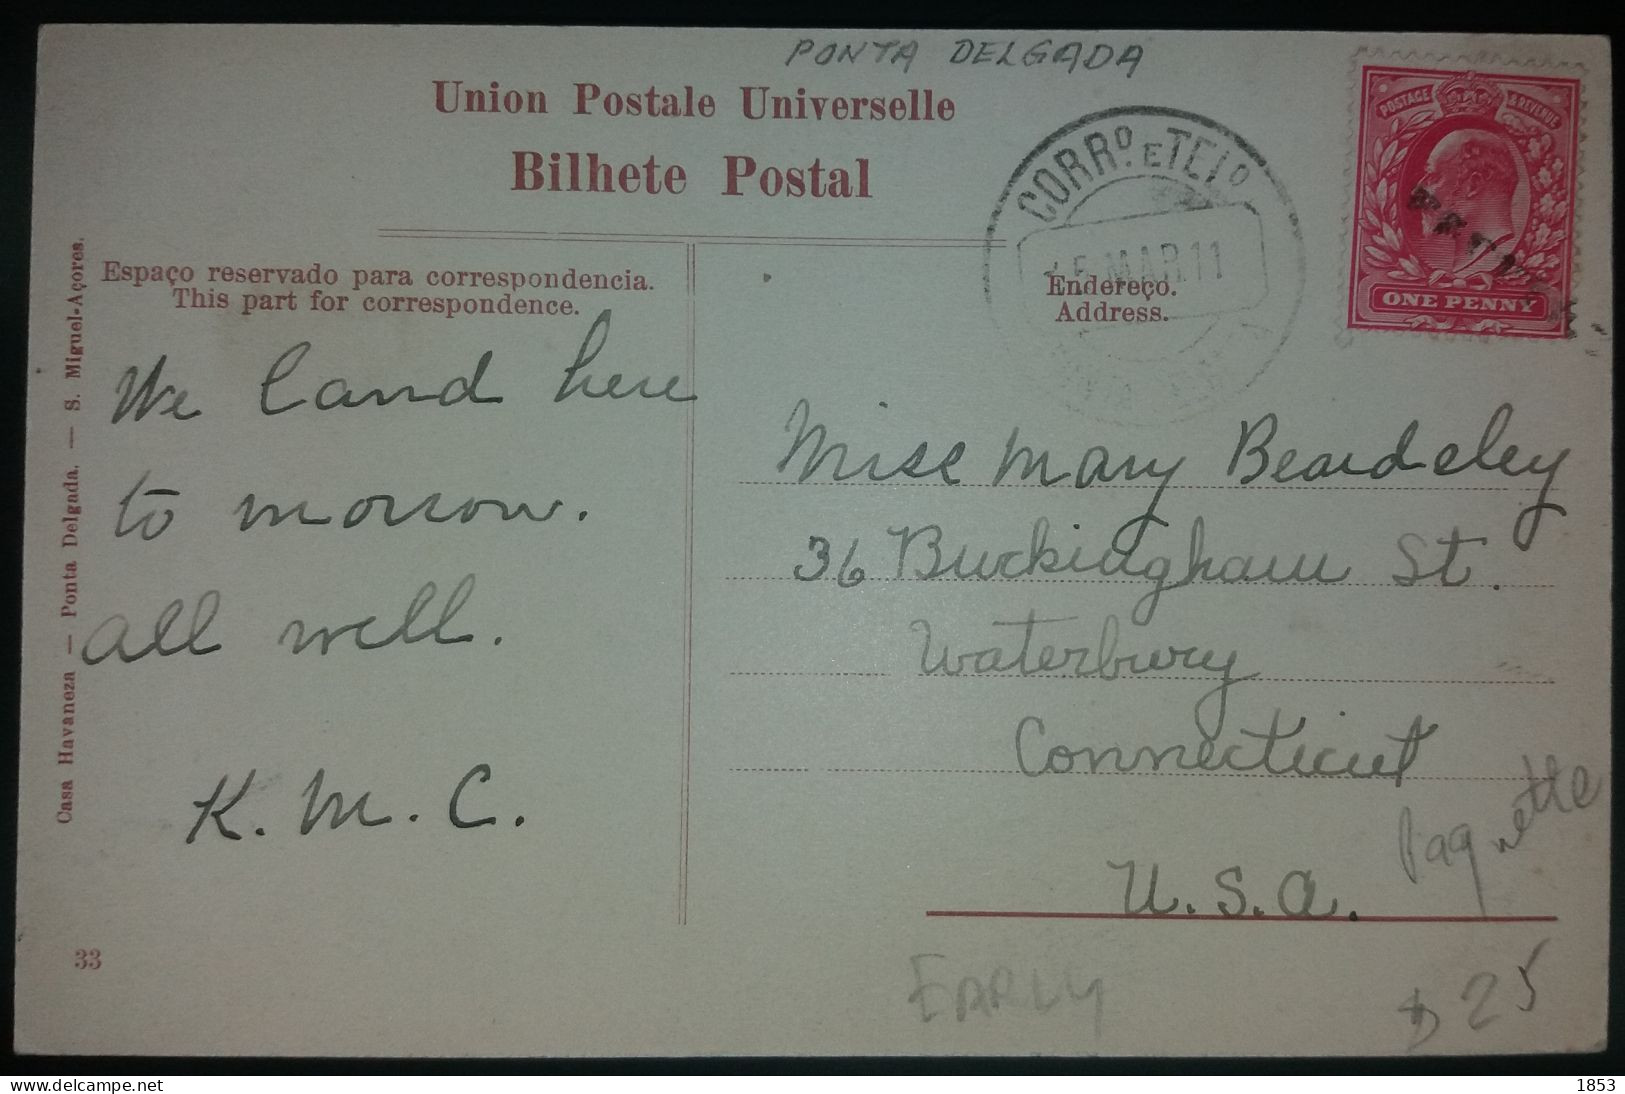 PONTA DELGADA
Union Postale Universelle
Bilhete Postal
CORRO. E TELO
MAR. 11
POSTAGE & REVENUE
ONE PENNY
Espaço reservado para correspondencia.
This part for correspondence.
Endereço.
Address.
We land here
to morrow.
all well.
K. M. C.
Miss Mary Beardsley
36 Buckingham St.
Waterbury
Connecticut
U. S. A.
Paquette
EARLY
$ 25
Casa Havaneza — Ponta Delgada. — S. Miguel-Açores.
33
1853